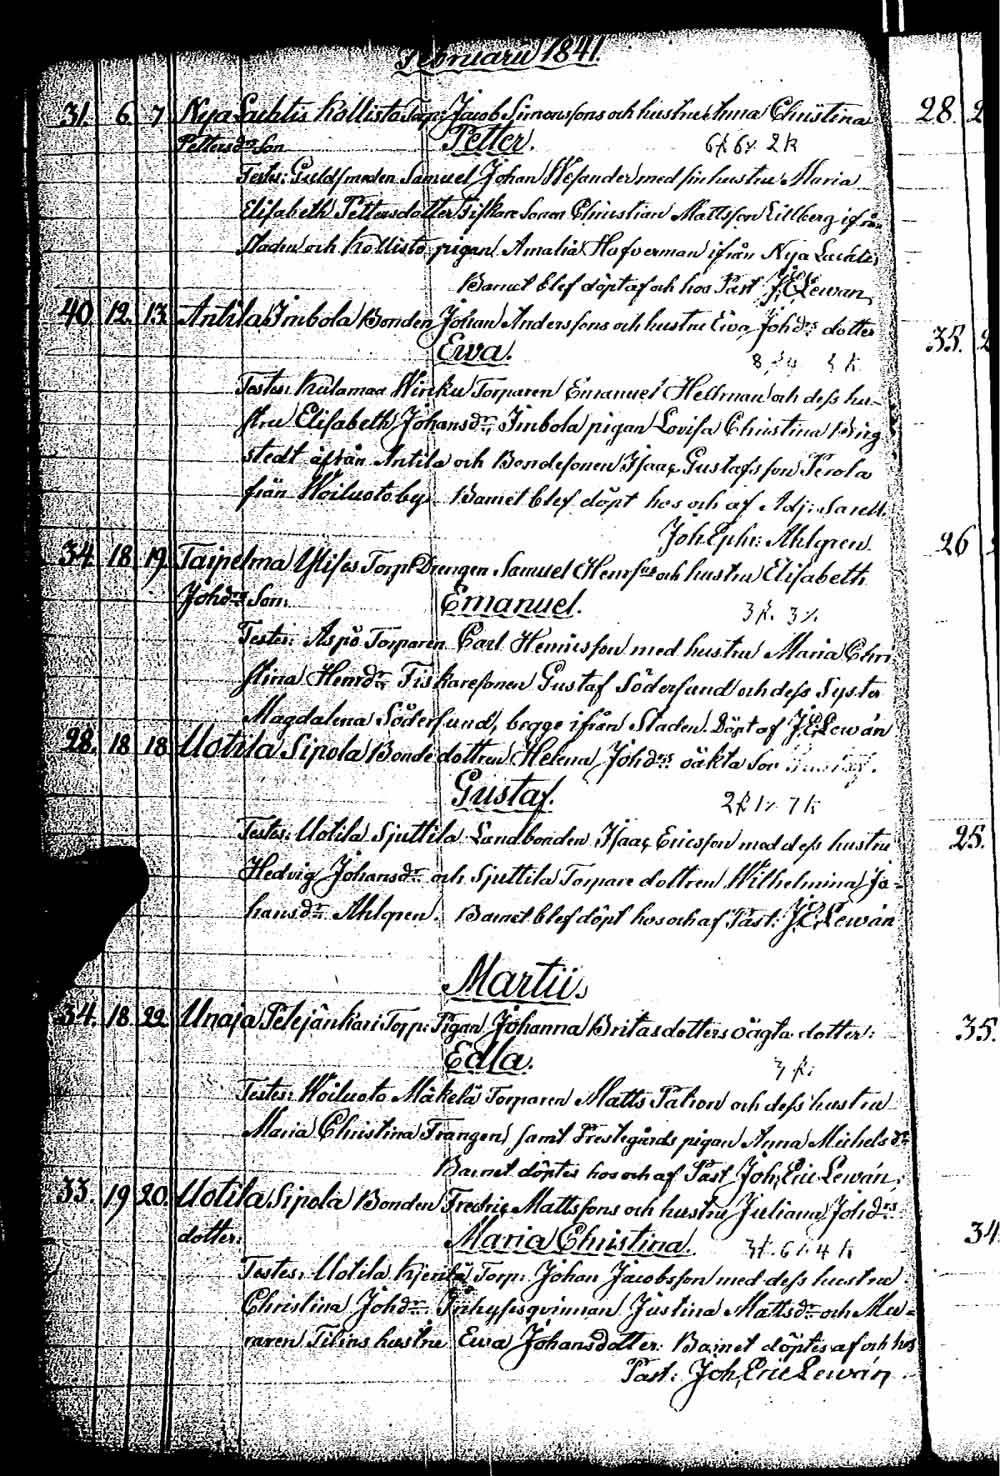 Februarii 1841.
31. 6. 7. Nya Lachtis Kollisto Torp: Jacob Simonssons och hustru Anna Christina 28.
Pettersdr Son Petter.
Testes: Guldsmeden Samuel Johan Wesander med sin hustru Maria
Elisabeth Pettersdotter, Fiskare Sonen Christian Mattsson Lillberg ifrån
staden och Kollisto pigan Amalia Hofverman ifrån Nya Lachtis
Barnet blef döpt af och hos Past J.E. Lewan,
40. 12. 13. Antila Imbola Bonden Johan Anderssons och hustru Ewa Johdrs dotter 35.
Ewa.
Testes: Kulamaa Torparen Emanuel Hellman och dess hu-
stru Elisabeth Johansdr, Imbola pigan Lovisa Christina Ring
stedt ifrån Antila och Bondesonen Isaac Gustafsson Perola
från Woiluoto by. Barnet blef döpt hos och af Adj:
Joh. Ephr: Ahlgren. 26
34. 18. 19. Taipelma Torp Drengen Samuel Henrsns och hustru Elisabeth
Johdrs Son. Emanuel.
Testes: Aspö Torparen Carl Henricsson med hustru Maria Chri
stina Henrdr. Fiskaresonen Gustaf Söderlund och dess Syster
Magdalena Söderlund, begge ifrån Staden. Döpt af J.E. Lewán
28. 18. 18. Uotila Sipola Bonde dottren Helena Johdrs oäkta Son
Gustaf.
Testes: Uotila Sjuttila Landbonden Isaac Ericsson med dess hustru 25.
Hedvig Johansdr och Sjuttila Torpare dottren Wilhelmina Jo-
hansdr Ahlgren. Barnet blef döpt hos och af Past: J.E. Lewán
Martii,
34. 18. 22. Unaja Petejänkari Torp: Pigan Johanna Britasdotters oägta dotter: 35.
Edla.
Testes: Woiluoto Mäkelä Torparen Matts Patron och dess hustru
Maria Christina Frangen, samt Prestegårds pigan Anna Michelsdr
Barnet döptes hos och af Past Joh, Eric Lewán,
33. 19. 20. Uotila Sipola Bonden Fredric Mattssons och hustru Juliana Johdrs
dotter: Maria Christina. 34.
Testes: Uotila Torp: Johan Jacobsson med dess hustru
Christina Johdr. Inhyssqvinnan Justina Mattsdr och Mu-
raren Tilins hustru Ewa Johansdotter. Barnet döptes af och hos
Past: Joh, Eric Lewán,